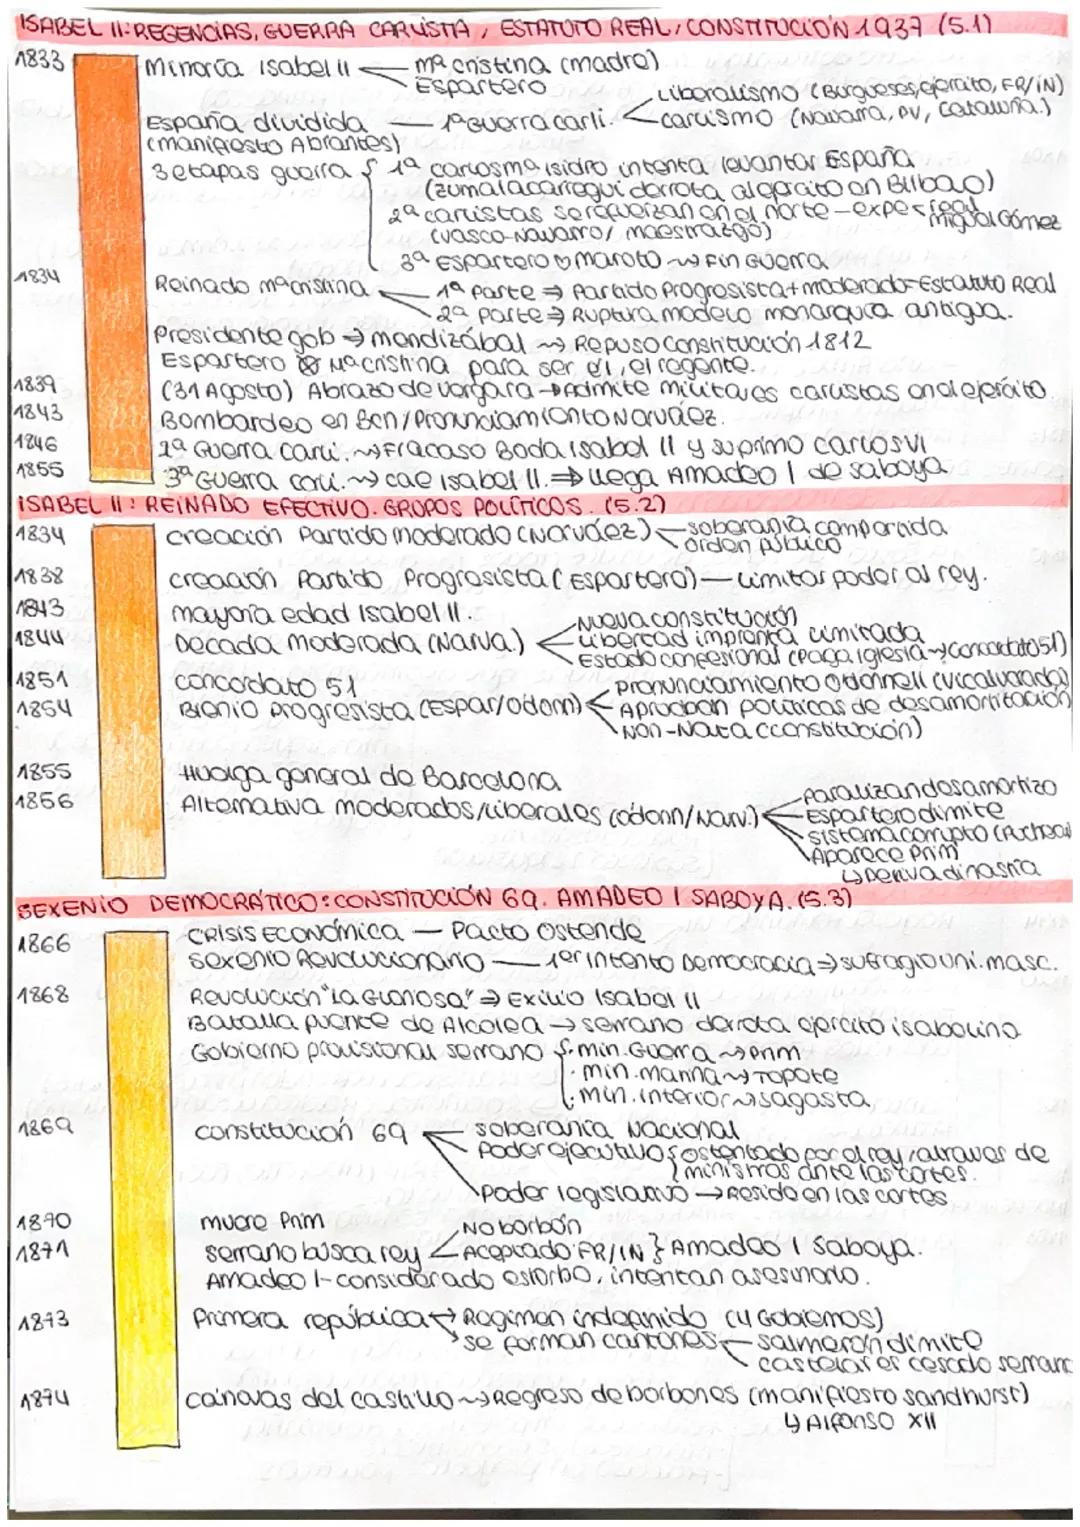 ISABEL II: REGENCIAS, GUERRA CARLISTA, ESTATUTO REAL, CONSTITUCIÓN 1937 (5.1)
1833 Minoría Isabel II mª cristina (madre)
Espartero
España dividida — 1ª Guerra carli. Liberalismo (Burgueses, ejército, FR/IN)
(manifiesto Abrantes) carlismo (Navarra, PV, Cataluña.)
3 etapas guerra { 1ª carlosmª isidro intenta levantar España
(zumalacarregui derrota al ejército en Bilbao)
2ª carlistas se refuerzan en el norte — expe real
(vasco-Navarro / maestrazgo) miguel Gómez
3ª Espartero maroto ~> Fin Guerra
1834 Reinado mª cristina 1ª Parte => Partido Progresista + moderado = Estatuto Real
2ª parte => Ruptura modelo monarquía antigua.
Presidente gob => mendizábal ~> Repuso constitución 1812
Espartero Mª cristina para ser él, el regente.
1839 (31 Agosto) Abrazo de vergara -> Admite militares carlistas en el ejército.
1843 Bombardeo en Bcn / Pronunciamiento Narváez.
1846 2ª Guerra carli. ~> Fracaso Boda Isabel II y su primo carlos VI
1855 3ª Guerra carli. ~> cae isabel II. => llega Amadeo I de saboya
ISABEL II: REINADO EFECTIVO. GRUPOS POLÍTICOS. (5.2)
1834 creación Partido moderado (Narváez) soberanía compartida
orden público
1838 creación Partido Progresista (Espartero) — limitar poder al rey.
1843 mayoría edad Isabel II.
1844 Década moderada (Narva.) Nueva constitución
Libertad imprenta limitada
Estado confesional (Paga iglesia ~> Concordato 51)
1851 concordato 51
1854 Bienio progresista (Espar/odonn) Pronunciamiento Odonnell (vicalvarada)
Aprueban políticas de desamortización
Non-Nata (constitución)
1855 Huelga general de Barcelona
1856 Alternativa moderados/liberales (odonn/Narv.) Paralizan desamortizo
Espartero dimite
sistema corrupto
Aparece Prim
dinastía
SEXENIO DEMOCRÁTICO: CONSTITUCIÓN 69. AMADEO I SABOYA. (5.3)
1866 CRISIS ECONÓMICA — Pacto Ostende
Sexenio Revolucionario — 1er intento Democracia => sufragio uni. masc.
1868 Revolución "La Gloriosa" => Exilio Isabel II
Batalla puente de Alcolea -> serrano derrota ejército isabelino
Gobierno provisional serrano { · min. Guerra ~> Prim
· min. marina ~> Topete
· min. interior ~> sagasta
1869 constitución 69 soberanía Nacional
Poder ejecutivo { ostentado por el rey / através de
ministros ante las cortes.
Poder legislativo -> Reside en las cortes
1870 muere Prim
1871 serrano busca rey No borbón
Aceptado FR/IN } Amadeo I Saboya.
Amadeo I - considerado estorbo, intentan asesinarlo.
1873 Primera república Régimen indefinido (4 Gobiernos)
se forman cantones salmerón dimite
castelar es cesado serrano
1874 cánovas del castillo ~> Regreso de borbones (manifiesto sandhurst)
↳ Alfonso XII